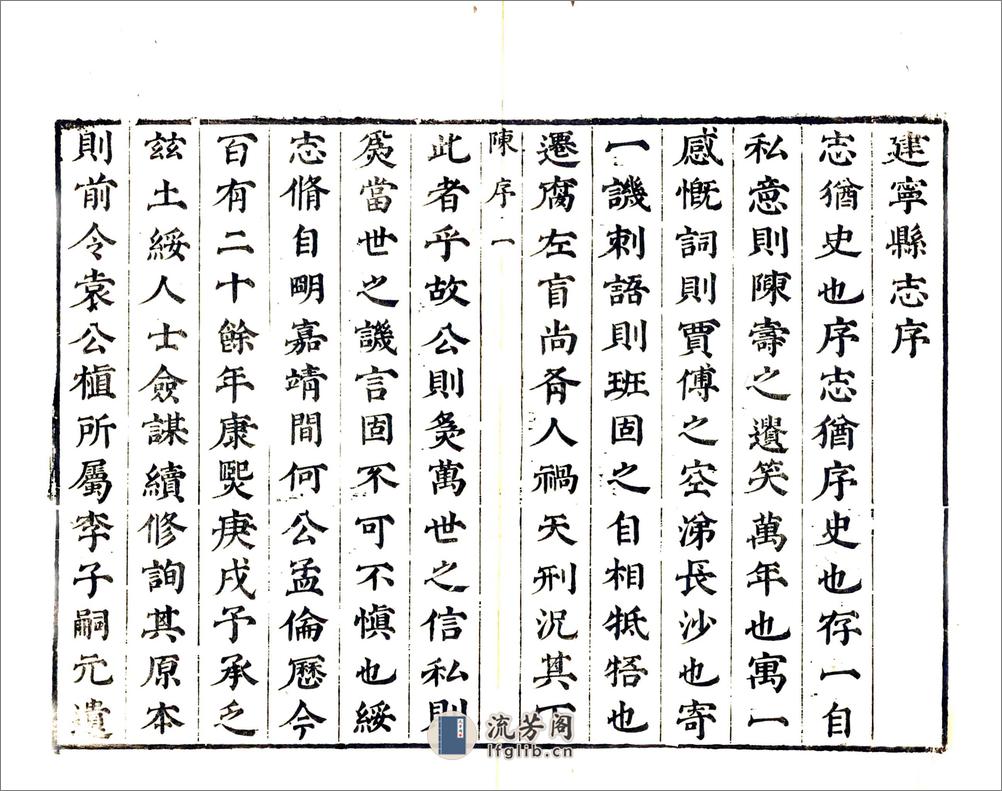 建寧縣志序
志猶史也序志猶序史也存一自
私意則陳壽之遺笑萬年也寓一
感慨詞則賈傅之空涕長沙也寄
一譏刺語則班固之自相牴牾也
遷腐左盲尚肴人禍天刑況其下
陳序 一
此者乎故公則爲萬世之信私則
爲當世之譏言固不可不愼也綏
志脩自明嘉靖間何公孟倫歷今
百有二十餘年康熙庚戌予承乏
茲土綏人士僉謀續修詢其原本
則前令袁公植所屬李子嗣元遺
流芳阁
lfglib.cn